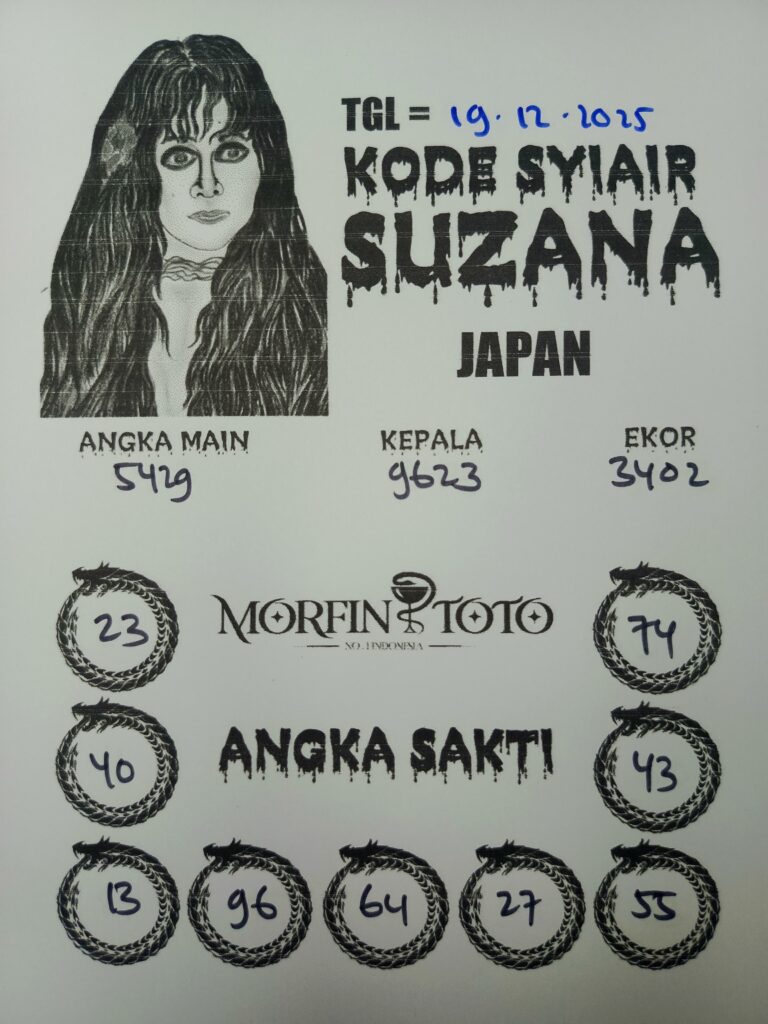 TGL = 19.12.2025
KODE SYIAIR
SUZANA
JAPAN
ANGKA MAIN KEPALA EKOR
5429 9623 3402
23 MORFIN TOTO 74
NO.1 INDONESIA
40 ANGKA SAKTI 43
13 96 64 27 55